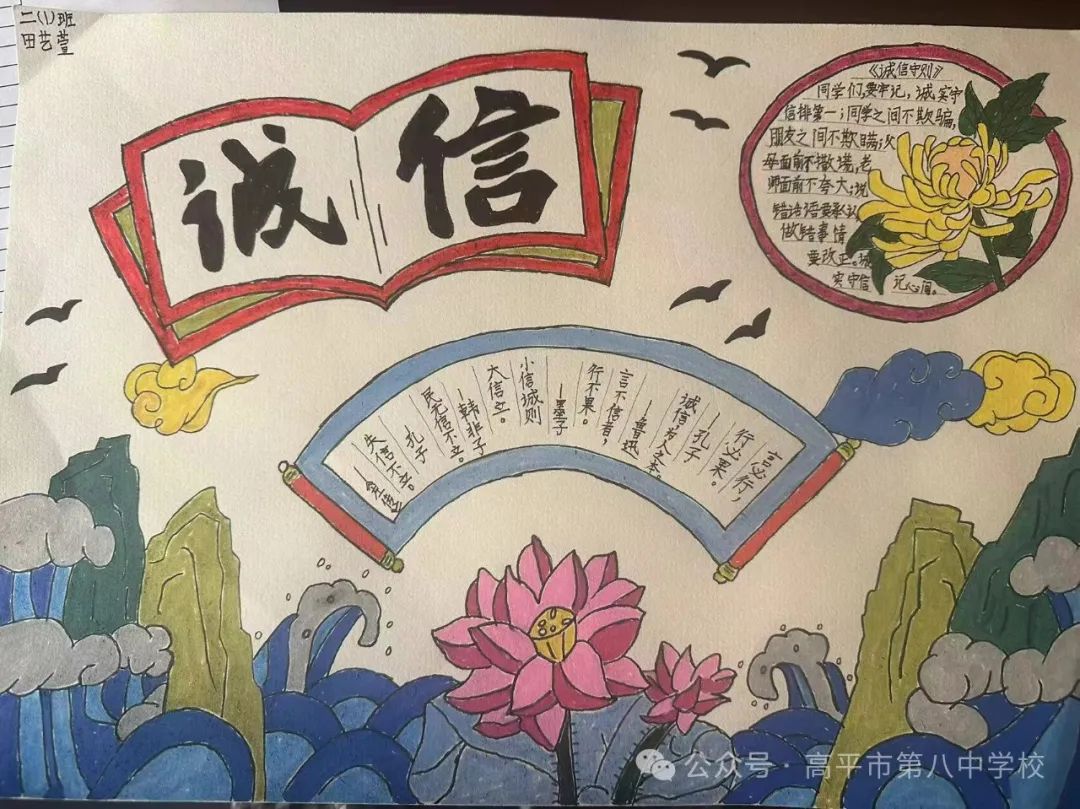 二(1)班
田艺萱
诚信
《诚信守则》
同学们,要牢记,诚实守
信排第一;同学之间不欺骗,
朋友之间不欺瞒;父
母面前不撒谎,老
师面前不夸大;说
错话语要承认
做错事情
要改正。诚
实守信 记心间。
言必行,
行必果。
—孔子
诚信为人之本。
—鲁迅
言不信者,
行不果。
—墨子
小信诚则
大信立。
—韩非子
民无信不立。
孔子
失信不立。
公众号·高平市第八中学校